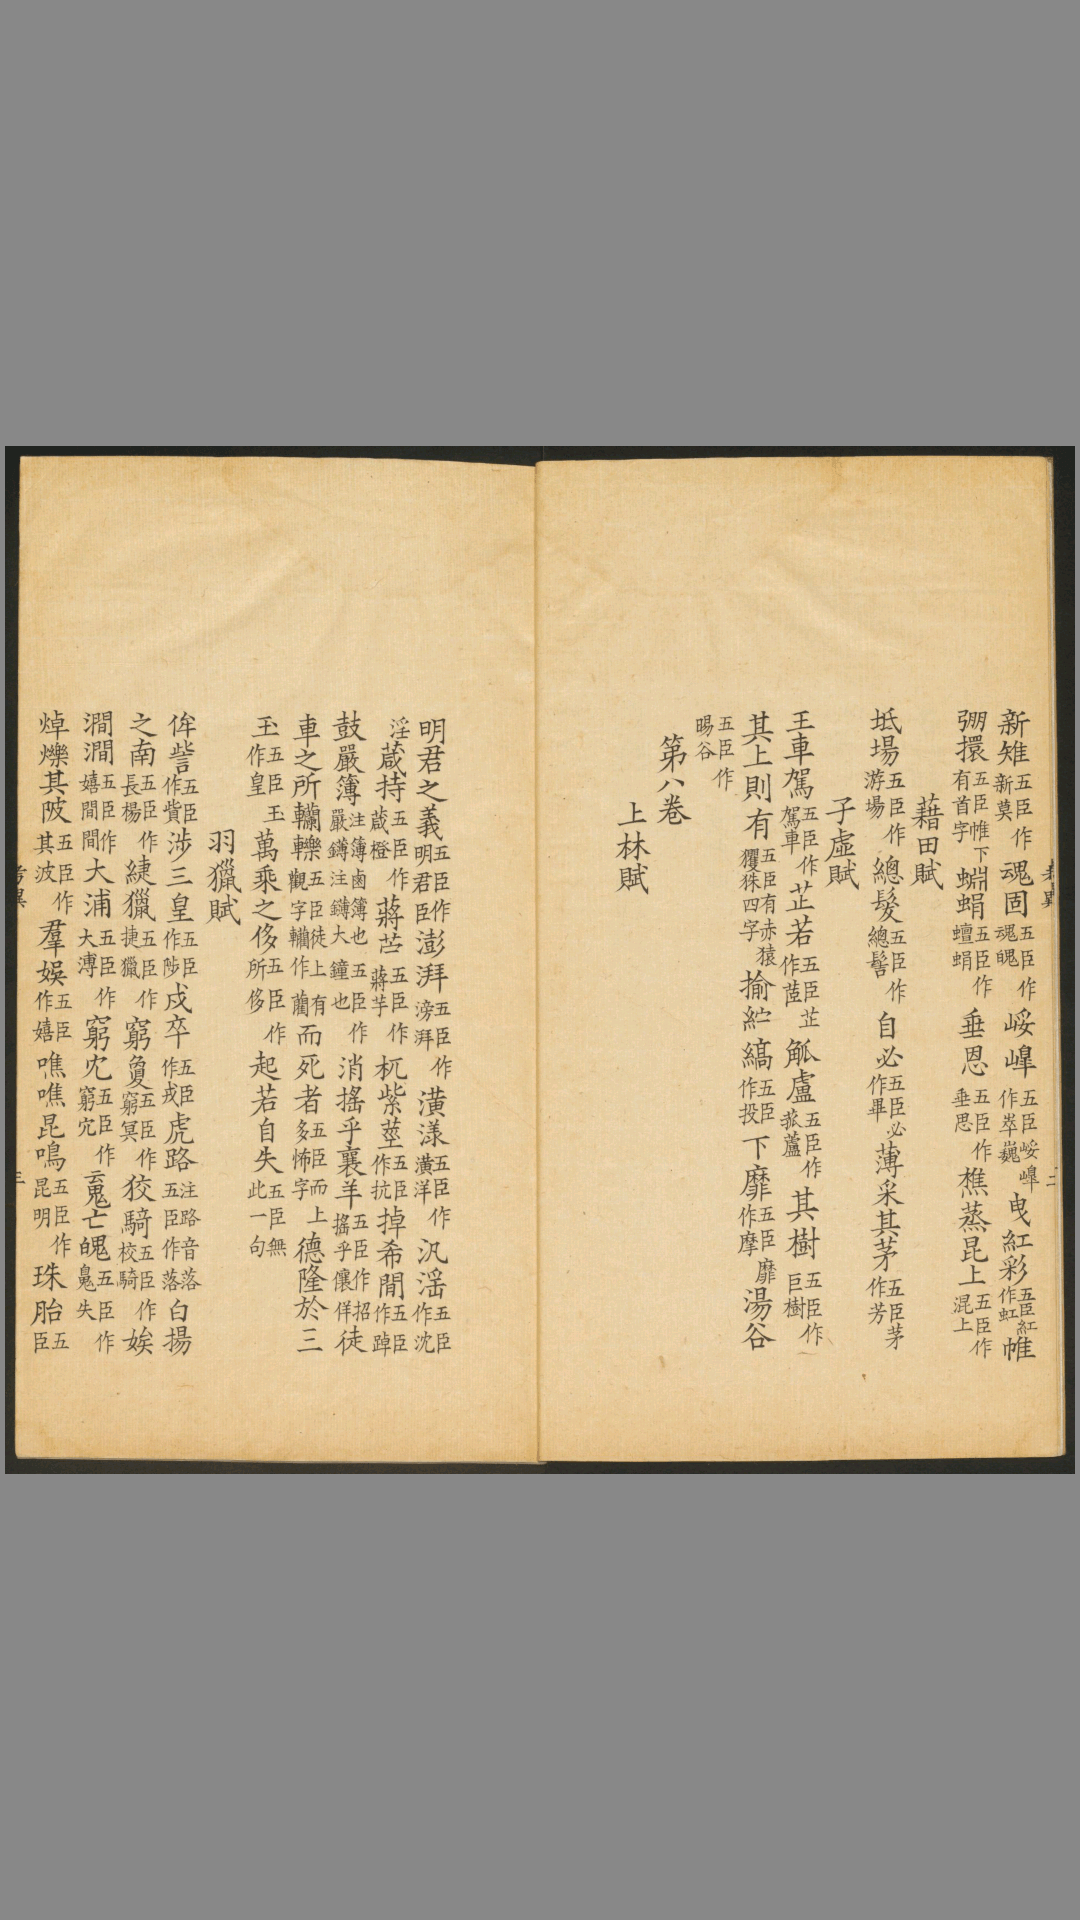 新雉五臣作新莫魂固五臣作魂䰟峌嶵五臣峌嶵作崒巍曳紅彩五臣紅作虹帷
弸擐五臣帷下有首字蜵蜎五臣作蟺蜎垂恩五臣作垂思樵蒸昆上五臣作混上
藉田賦
坻場五臣作游場總髮五臣作總髻自必五臣必作畢薄采其茅五臣茅作芳
子虛賦
王車駕五臣作駕車芷若五臣芷作茝觚盧五臣作菰蘆其樹五臣作巨樹
其上則有五臣有赤猿玃猱四字揄紵縞五臣作投下靡五臣靡作摩湯谷
五臣作暘谷
第八卷
上林賦
明君之義五臣作明君臣澎湃五臣作滂湃潢漾五臣作潢洋汎淫五臣作沈
淫葴持五臣作葴橙蔣苎五臣作蔣芧杌紫莖五臣作抗掉希間五臣作踔
鼓嚴簿注簿鹵簿也五臣作嚴鑮注鑮大鐘也消搖乎襄羊五臣作招搖乎儴佯徒
車之所轥轢五臣徒上有觀字轥作藺而死者五臣而上多怖字德隆於三
王五臣王作皇萬乘之侈五臣作所侈起若自失五臣無此一句
羽獵賦
侔訾五臣作貲涉三皇五臣作陟戍卒五臣作戎虎路注路音落五臣作落白揚
之南五臣作長楊緁獵五臣作捷獵窮敻五臣作窮冥狡騎五臣作校騎娭
澗澗五臣作嬉間間大浦五臣作大溥窮冘五臣作窮宂云䰟亡魄五臣作䰟失
焯爍其陂五臣作其波羣娛五臣作嬉噍噍昆鳴五臣作昆明珠胎五臣